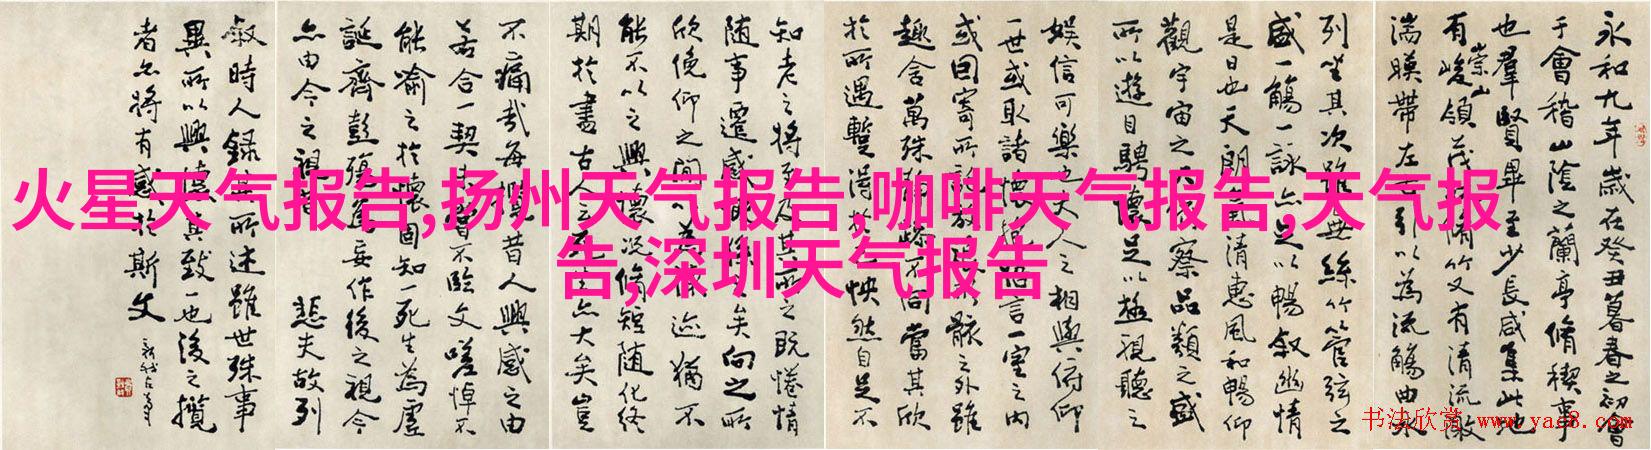 火星天气报告,扬州天气报告,咖啡天气报告,天气报
告,深圳天气报告
永和九年歲在癸丑暮春之初會
于會稽山陰之蘭亭脩稧事
也羣賢畢至少長咸集此地
有崇山峻領茂林脩竹又有清流激
湍暎帶左右引以為流觴曲水
列坐其次雖無絲竹管弦之
盛一觴一詠亦足以暢敘幽情
是日也天朗氣清惠風和暢仰
觀宇宙之大俯察品類之盛
所以遊目騁懷足以極視聽之
娛信可樂也夫人之相與俯仰
一世或取諸懷抱悟言一室之內
或因寄所託放浪形骸之外雖
趣舍萬殊靜躁不同當其欣
於所遇暫得於己怏然自足不
知老之將至及其所之既惓情
随事遷感慨係之矣向之所
欣俛仰之間以為陳迹猶不
能不以之興懷況脩短随化終
期於盡古人云死生亦大矣豈
不痛哉每攬昔人興感之由
若合一契未嘗不臨文嗟悼不
能喻之於懷固知一死生為虛
誕齊彭殤為妄作後之視今
亦由今之視昔 悲夫故列
敘時人錄其所述雖世殊事
異所以興懷其致一也後之攬
者亦將有感於斯文
书法欣赏 www.yac8.com